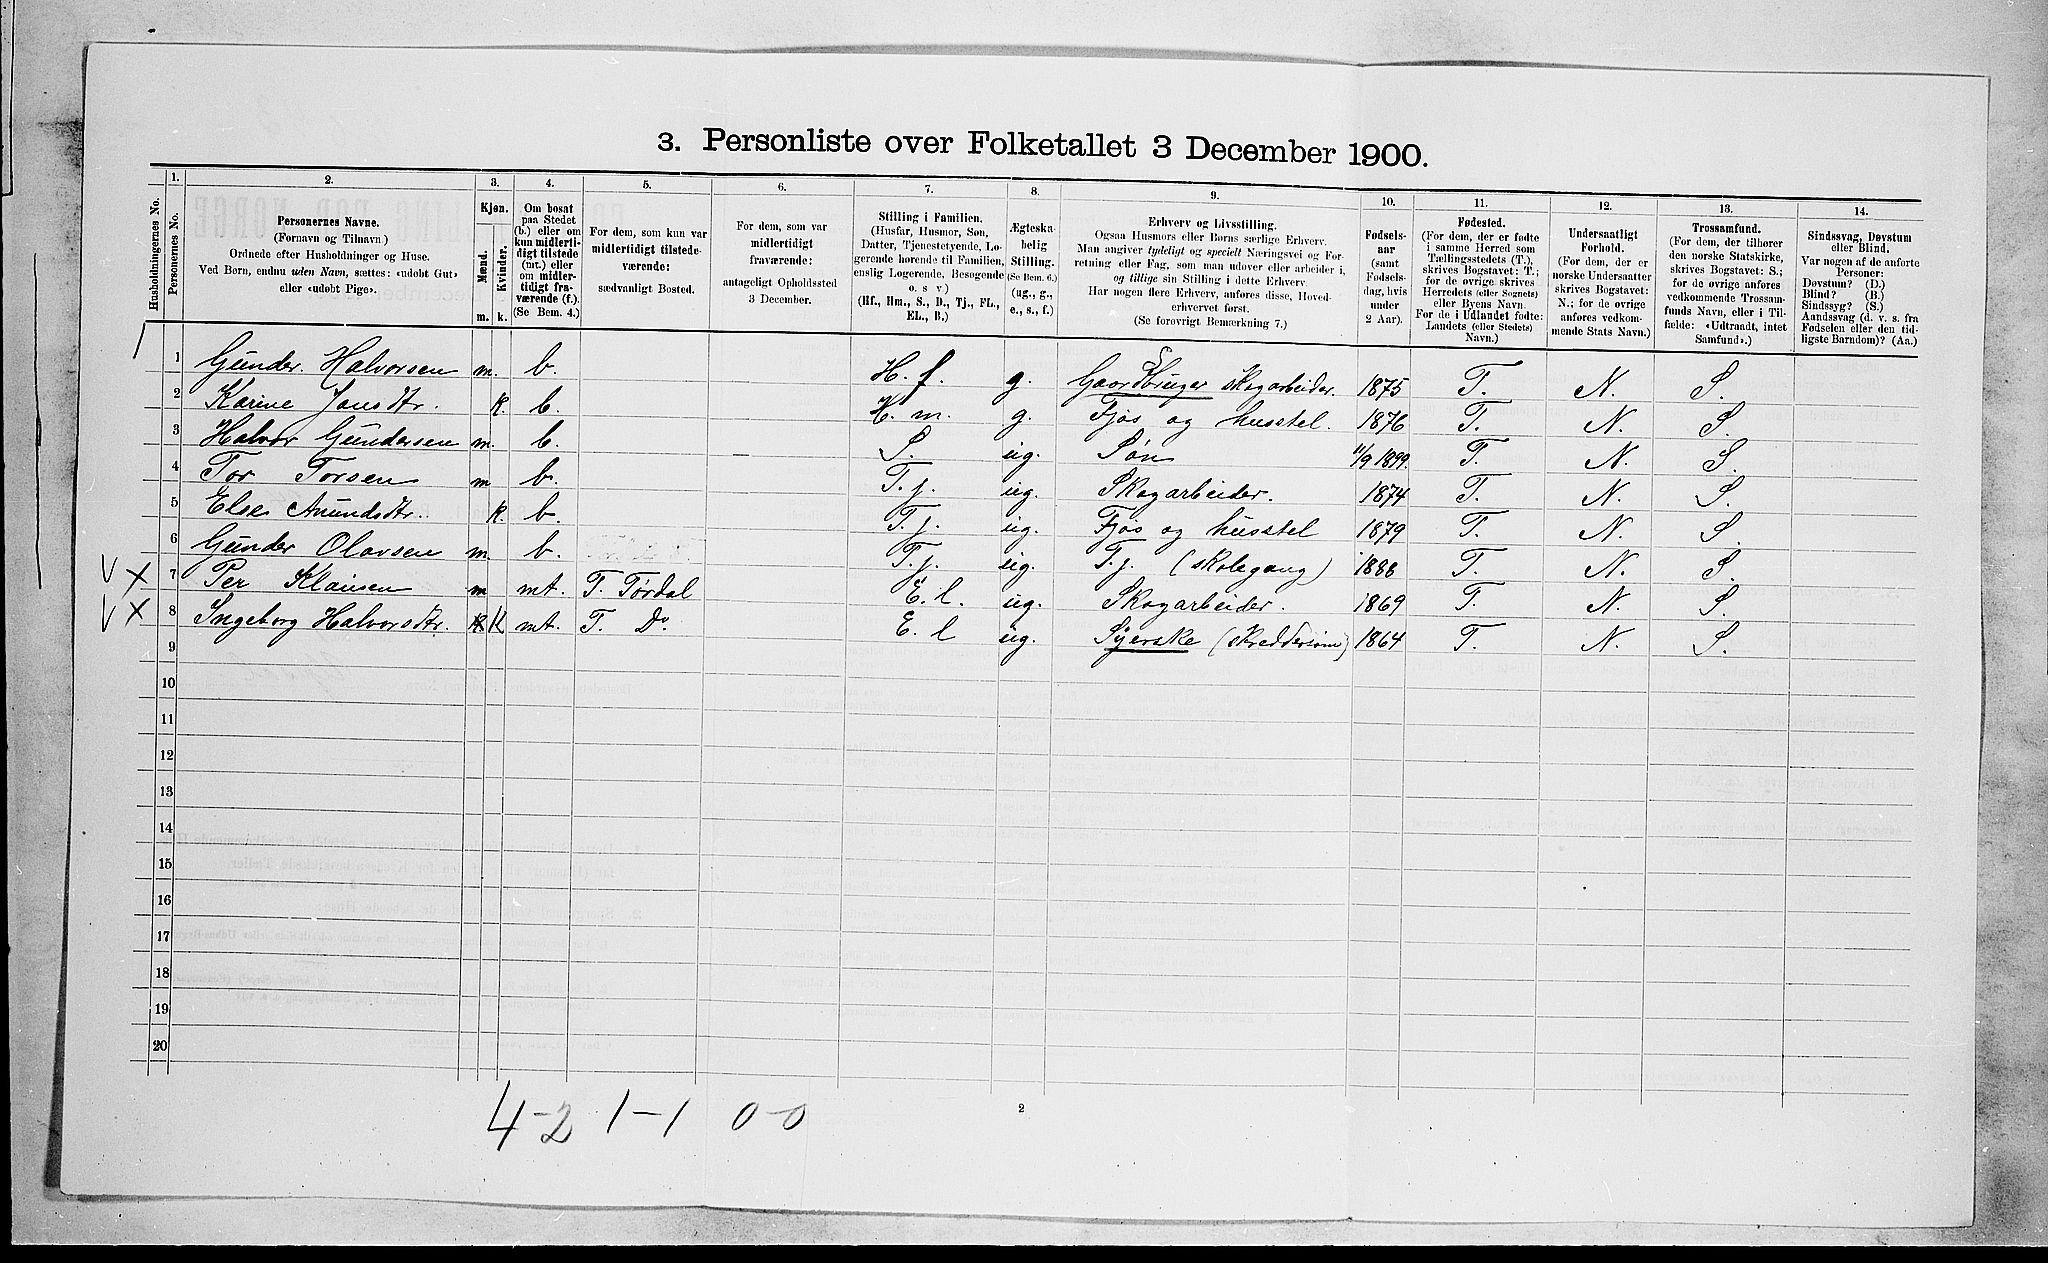 3. Personliste over Folketallet 3 December 1900.
1. 2. 3. 4. 5. 6. 7. 8. 9. 10. 11. 12. 13. 14.
Husholdningernes No.
Personernes No.
Personernes Navne.
(Fornavn og Tilnavn)
Ordnede efter Husholdninger og Huse.
Ved Børn, endnu uden Navn, sættes: «udøbt Gut»
eller «udøbt Pige».
Kjøn.
Mænd.
Kvinder.
m. k.
Om bosat
paa Stedet
(b.) eller om
kun midlerti-
digt tilstede
(mt.) eller
om midler-
tidigt fra-
værende (f.).
(Se Bem. 4.)
For dem, som kun var
midlertidigt tilstede-
værende:
sædvanligt Bosted.
For dem, som var
midlertidigt
fraværende:
antageligt Opholdssted
3 December.
Stilling i Familien.
(Husfar, Husmor, Søn,
Datter, Tjenestetyende, Lo-
gerende hørende til Familien,
enslig Logerende, Besøgende
o. s v)
(Hf., Hm., S., D., Tj., FL.,
EL., B.)
Ægteska-
belig
Stilling.
(Se Bem. 6.)
(ug., g.,
e., s., f.)
Erhverv og Livsstilling.
Ogsaa Husmors eller Børns særlige Erhverv.
Man angiver tydeligt og specielt Næringsvei og For-
retning eller Fag, som man udøver eller arbeider i,
og tillige sin Stilling i dette Erhverv
Har nogen flere Erhverv, anføres disse, Hoved-
erhvervet først.
(Se forøvrigt Bemærkning 7.)
Fødsels-
aar
(samt
Fødsels-
dag, hvis
under
2 Aar).
Fødested.
(For dem, der er fødte
i samme Herred som
Tællingsstedets (T.),
skrives Bogstavet: T.;
for de øvrige skrives
Herredets (eller Sognets)
eller Byens Navn.
For de i Udlandet fødte:
Landets (eller Stedets)
Navn.)
Undersaatligt
Forhold.
(For dem, der er
norske Undersaatter
skrives Bogstavet:
N.; for de øvrige
anføres vedkom-
mende Stats Navn.)
Trossamfund.
(For dem, der tilhører
den norske Statskirke,
skrives Bogstavet: S.;
for de øvrige anføres
vedkommende Trossam-
funds Navn, eller i Til-
fælde: «Udtraadt, intet
Samfund».)
Sindssvag, Døvstum
eller Blind.
Var nogen af de anførte
Personer:
Døvstum? (D.)
Blind? (B.)
Sindssyg? (S.)
Aandssvag (d. v. s. fra
Fødselen eller den tid-
ligste Barndom)? (Aa.)
1 Gunder Halvorsen m. b. H. f. g. Gaardbruger skogarbeider. 1875 T. N. S.
2 Karine Jonsdtr. k. b. H. m. g. Fjøs og husstel. 1876 T. N. S.
3 Halvor Gundersen m. b. S. ug. Søn 11/9 1899. T. N. S.
4 Tor Torsen m b. T. j. ug. Skogarbeider. 1874 T. N. S.
5 Else Anundsdtr. k. b. T. j. ug. Fjøs og husstel 1879 T. N. S.
6 Gunder Olavsen m. b. T. j. ug. T. j. (skolegang) 1888 T. N. S.
V X 7 Per Klausen m mt. T. Tørdal E. l. ug. Skogarbeider. 1869 T. N. S.
V X 8 Ingeborg Halvorsdtr. K mt. T. Do E. l ug. Syerske (skreddersøm) 1864 T. N. S.
9
10
11
12
13
14
15
16
17
18
19
20
4-2 1-1 0-0
2